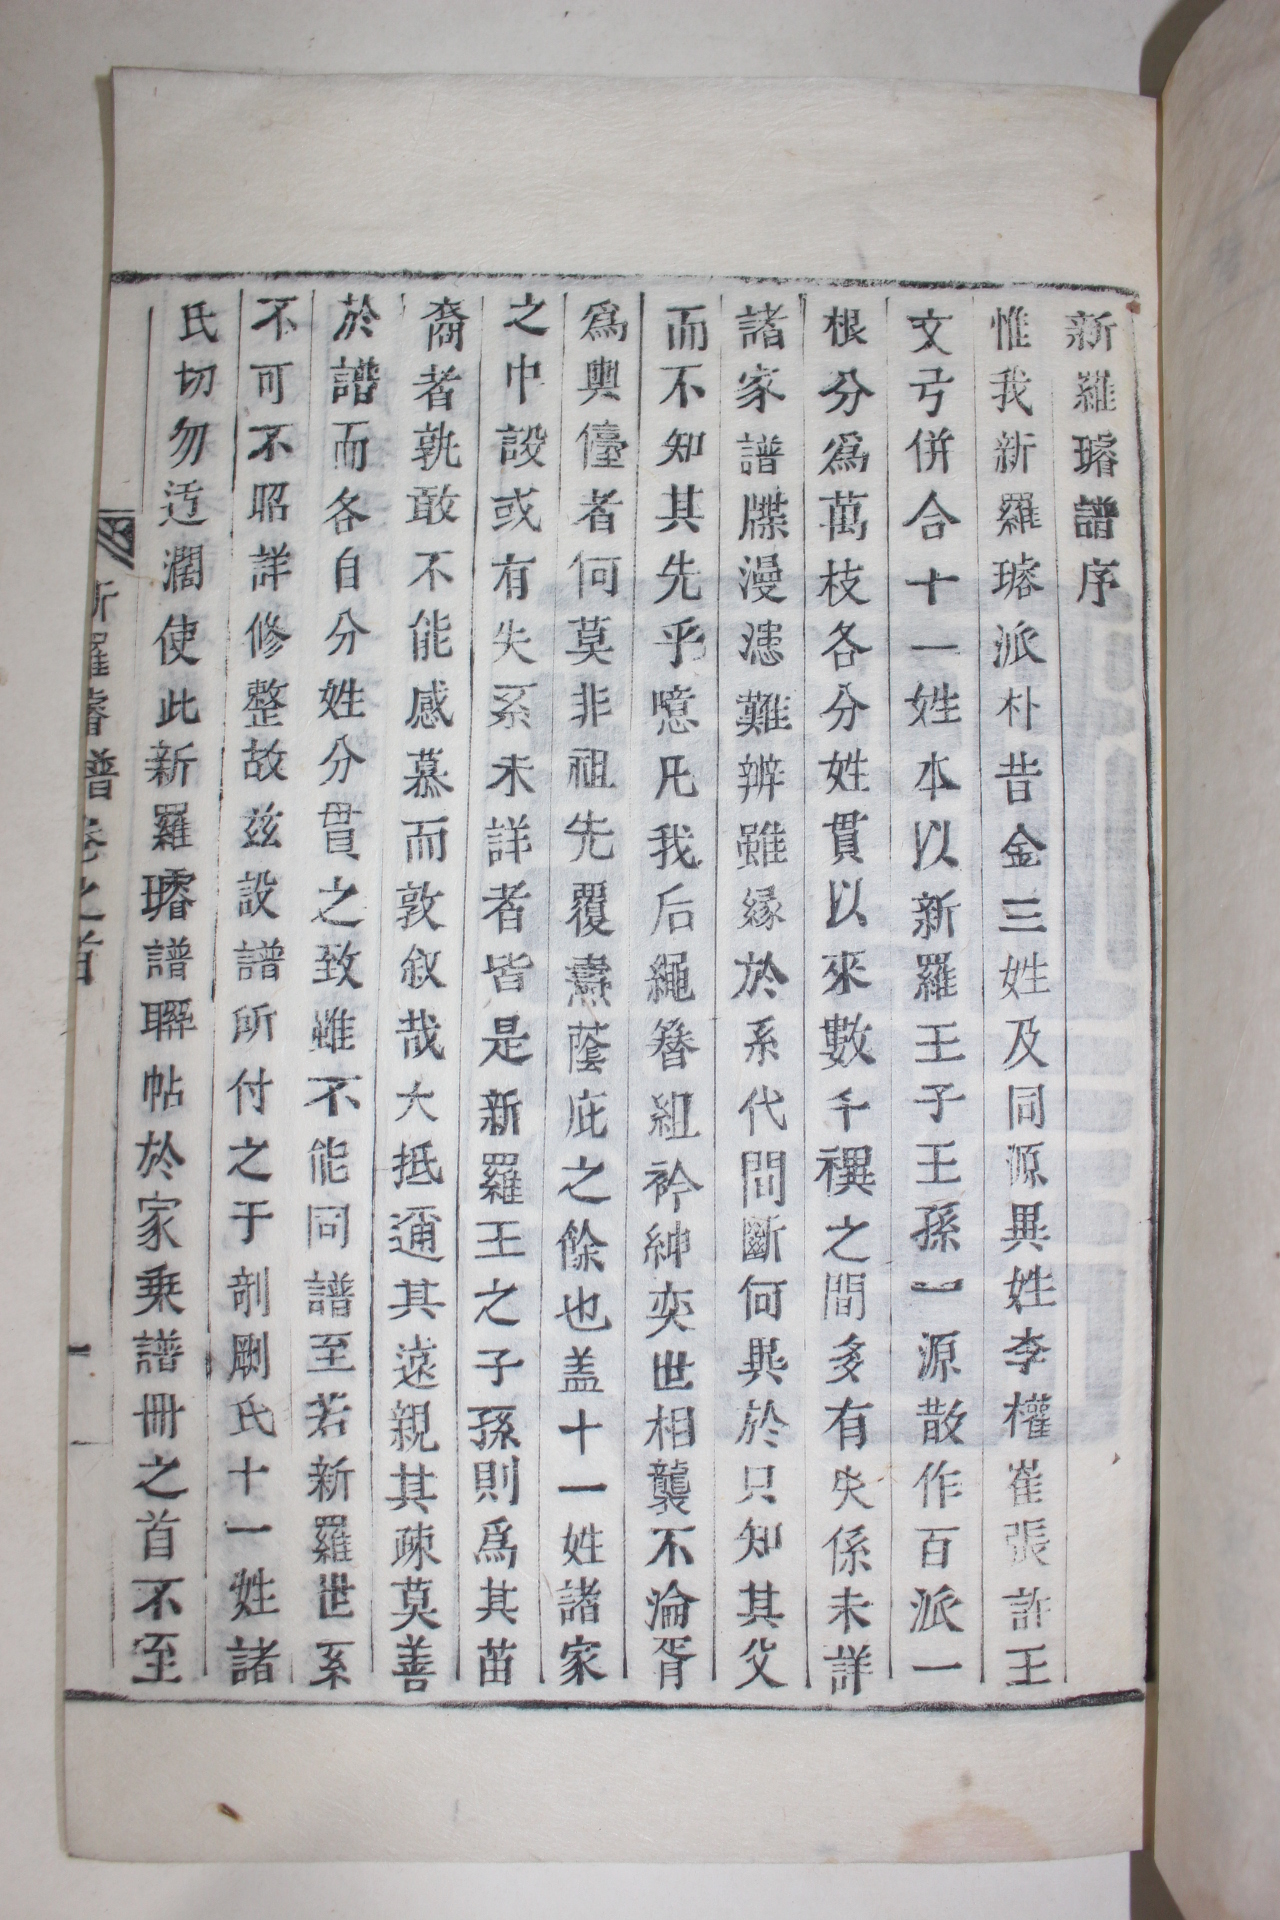 新羅璿譜序
惟我新羅璿派朴昔金三姓及同源異姓李權崔張許王
文弓併合十一姓本以新羅王子王孫一源散作百派一
根分爲萬枝各分姓貫以來數千禩之間多有失係未詳
諸家譜牒漫漶難辨雖緣於系代間斷何異於只知其父
而不知其先乎噫凡我后繩簪組衿紳奕世相襲不淪胥
爲輿儓者何莫非祖先覆燾蔭庇之餘也盖十一姓諸家
之中設或有失系未詳者皆是新羅王之子孫則爲其苗
裔者孰敢不能感慕而敦叙哉大抵邇其遠親其疎莫善
於譜而各自分姓分貫之致雖不能同譜至若新羅世系
不可不昭詳修整故玆設譜所付之于剞劂氏十一姓諸
氏切勿迃濶使此新羅璿譜聯帖於家乘譜冊之首不至
新羅璿譜卷之首
一